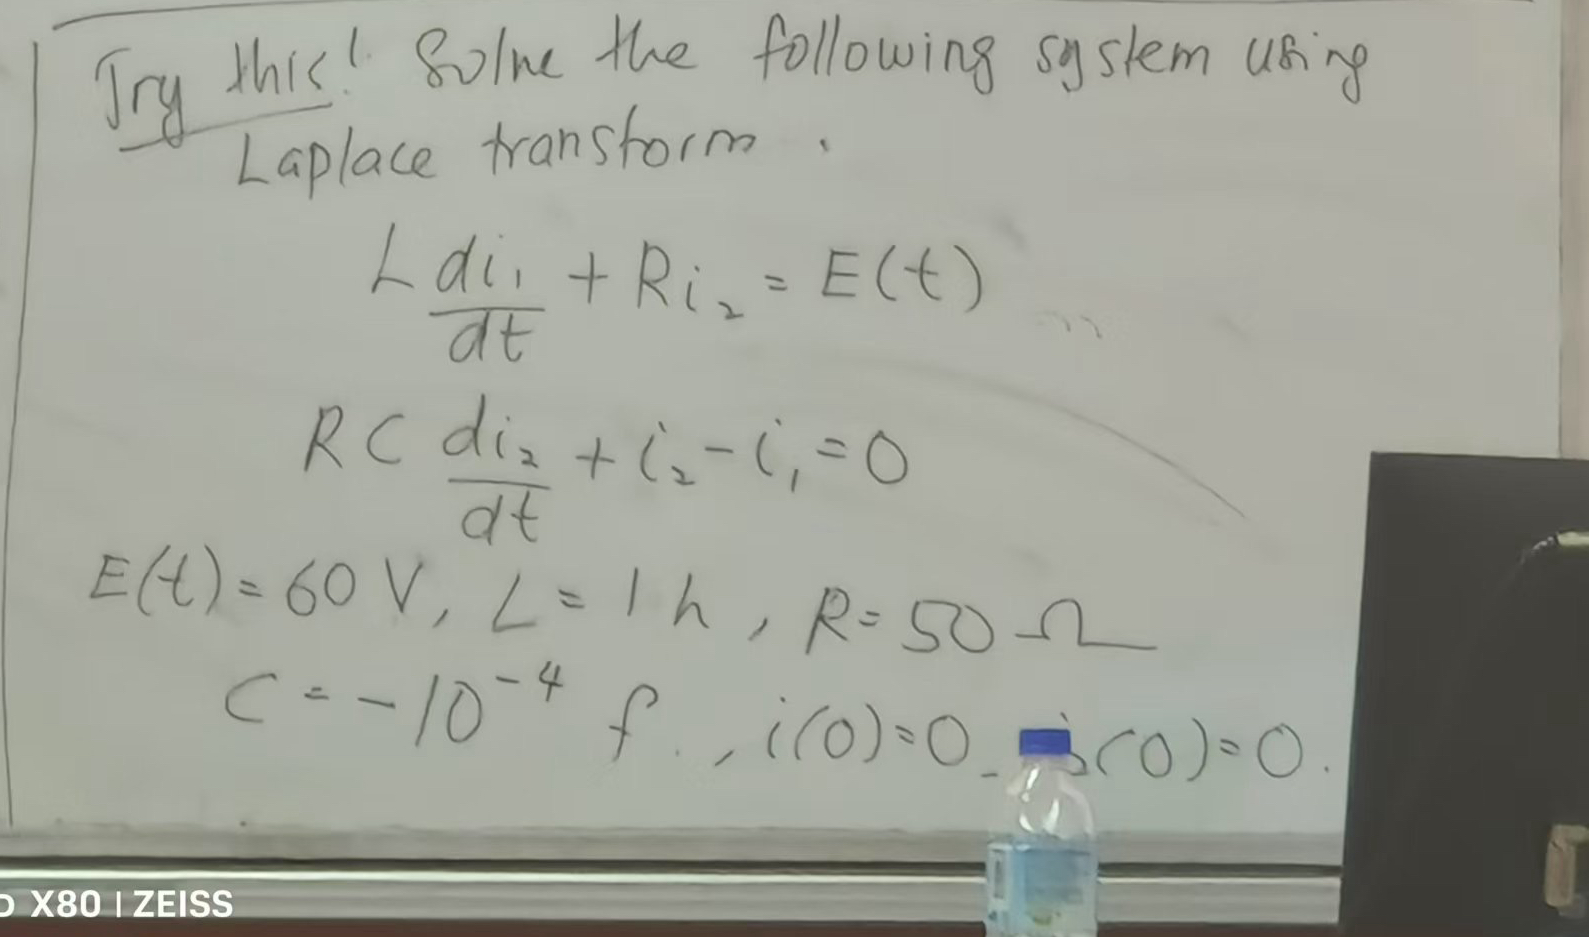 Try this! Solve the following system using
Laplace transform.
L di₁/dt + Ri₂ = E(t)
RC di₂/dt + i₂ - i₁ = 0
E(t) = 60 V, L = 1 h, R = 50 Ω
C = -10⁻⁴ f., i(0) = 0 (0) = 0.
X80 | ZEISS